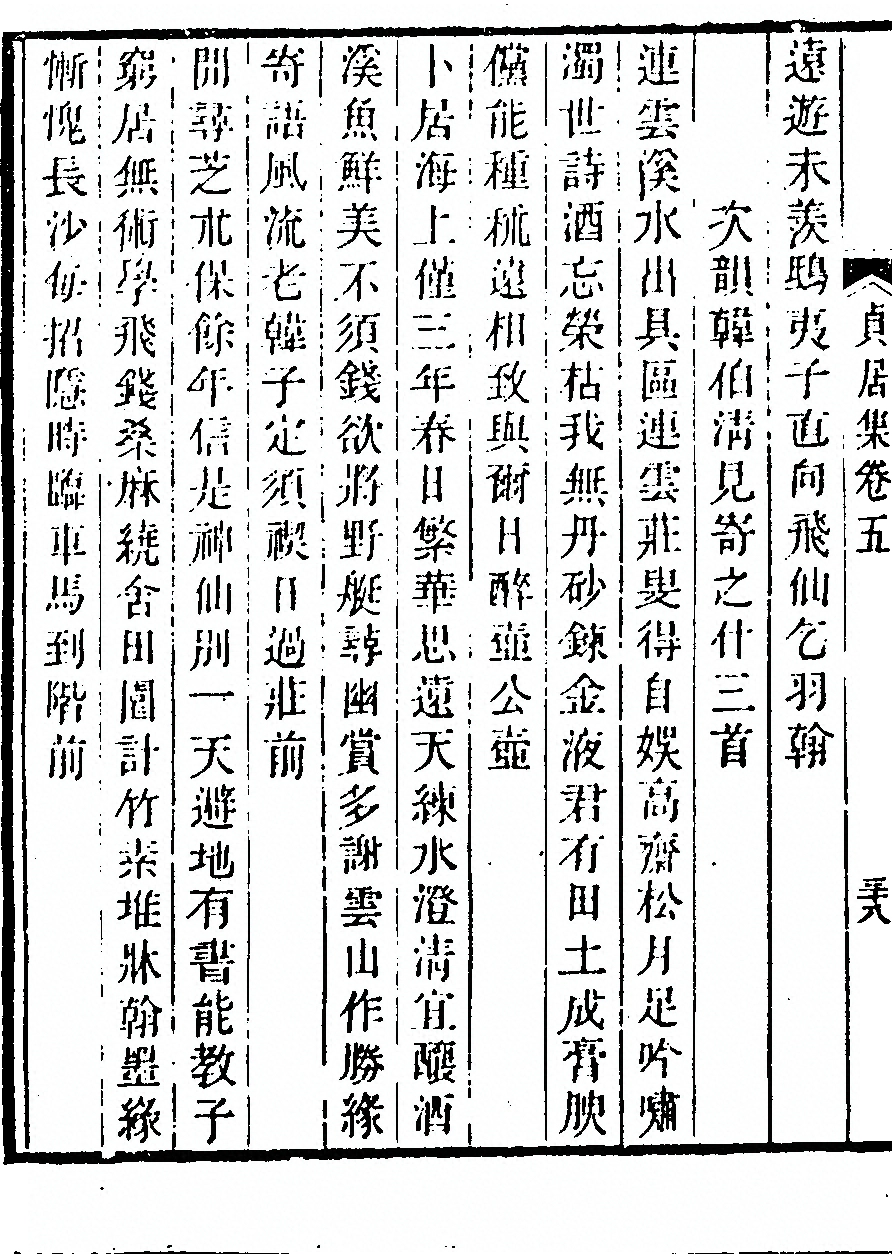 貞居集卷五
三十八
遠遊未羨鴟夷子直向飛仙乞羽翰
次韻韓伯淸見寄之什三首
連雲溪水出具區連雲莊叟得自娛高齋松月足吟嘯
濁世詩酒忘榮枯我無丹砂鍊金液君有田土成膏腴
儻能種秫遠相致與爾日醉壺公壺
卜居海上僅三年春日繁華思遠天練水澄淸宜釀酒
溪魚鮮美不須錢欲將野艇尋幽賞多謝雲山作勝緣
寄語風流老韓子定須禊日過莊前
閒尋芝朮保餘年信是神仙別一天避地有書能教子
窮居無術學飛錢桑麻繞舍田園計竹素堆牀翰墨緣
慚愧長沙每招隱時臨車馬到階前